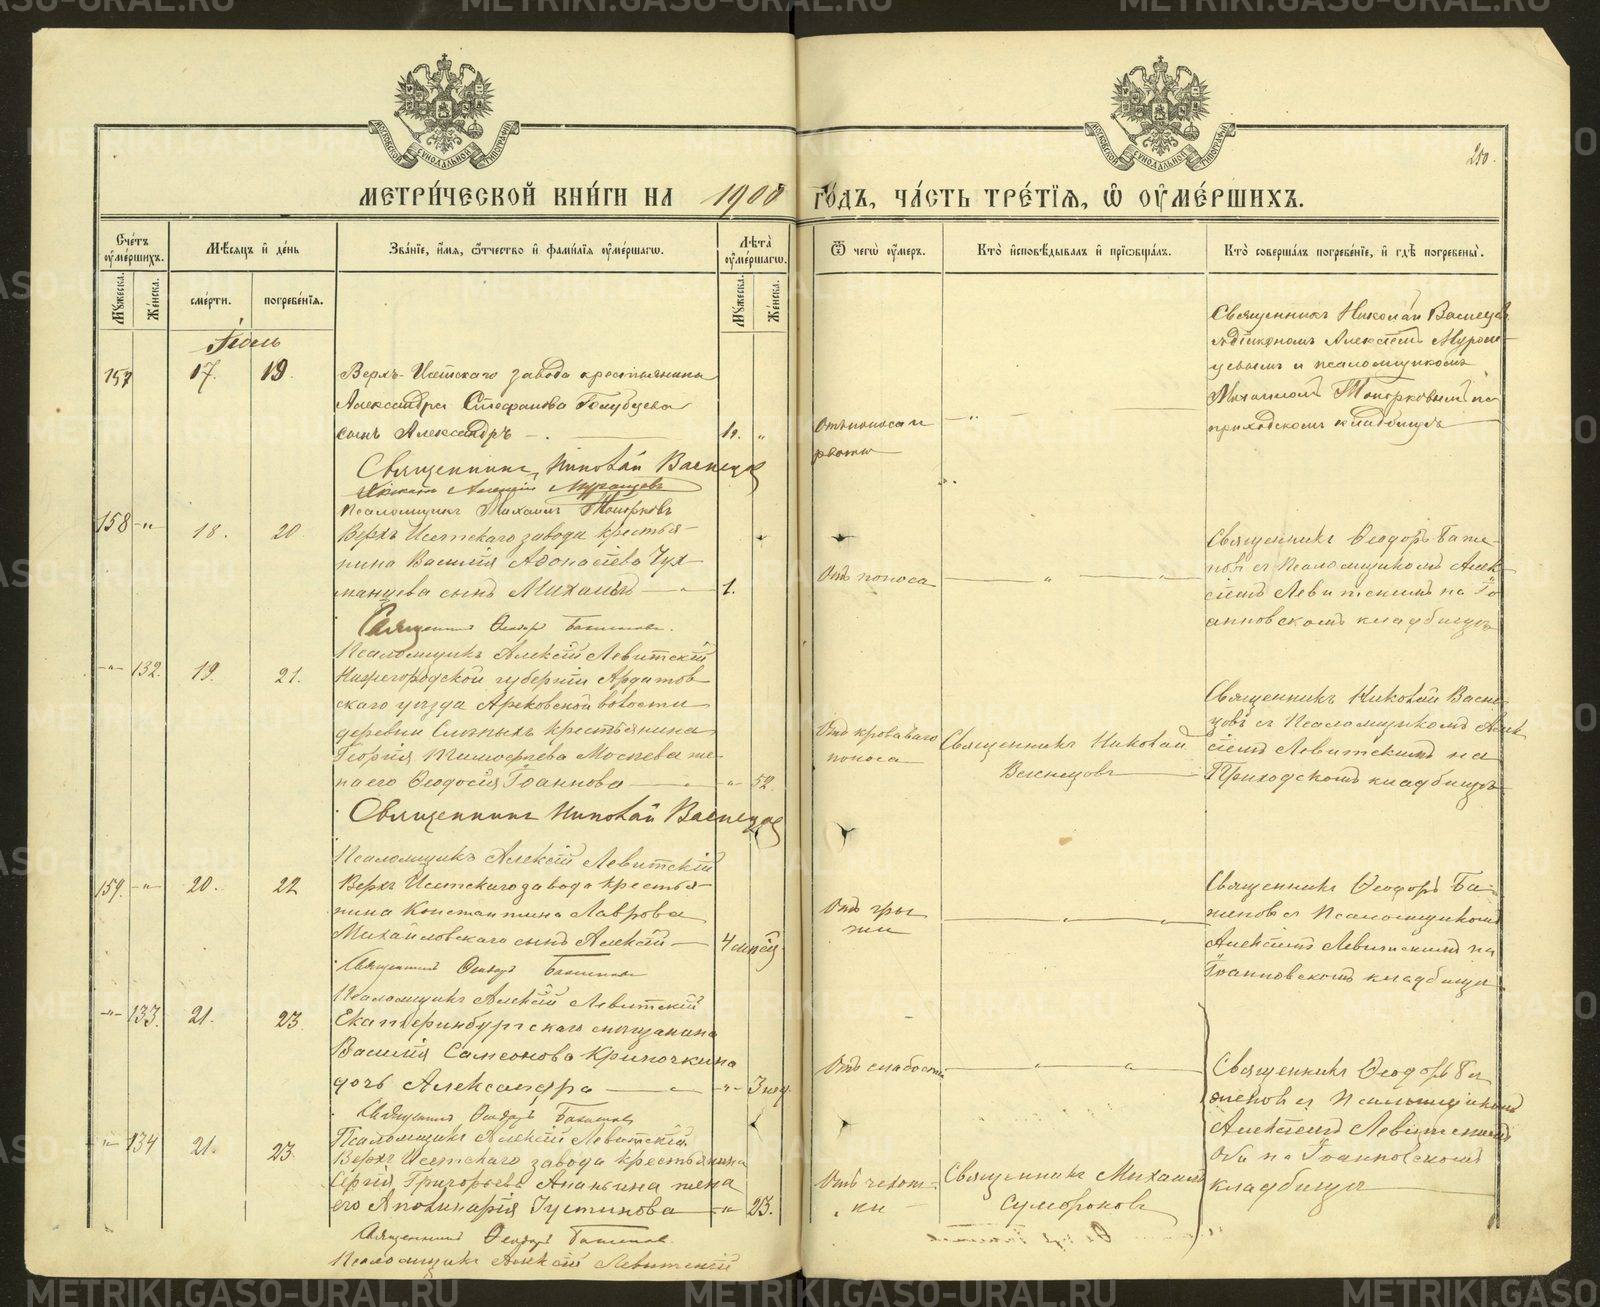 METRIKI.GASO-URAL.RU
МОСКОВСКОЙ СѴНОДАЛЬНОЙ ТИПОГРАФІИ
МОСКОВСКОЙ СѴНОДАЛЬНОЙ ТИПОГРАФІИ
250.
МЕТРИ́ЧЕСКОЙ КНИ́ГИ НА 1900 ГО́ДЪ, ЧА́СТЬ ТРЕ́ТІѦ, Ѽ ОУМЕ́РШИХЪ.
Сче́тъ оуме́ршихъ.
Му́жеска.
Же́нска.
Мѣ́сяцъ и де́нь
сме́рти.
погребе́нїя.
Зва́нїе, и́мя, ѻ́тчество и фами́лїя оуме́ршагѡ.
Лѣ́та оуме́ршагѡ.
Му́жеска.
Же́нска.
Ѿ чегѡ̀ оу́меръ.
Кто̀ и҆сповѣ́дывалъ и прїѡбща́лъ.
Кто̀ соверша́лъ погребе́нїе, и гдѣ̀ погребены̀.
Іюль
157 17. 19.
Верхъ-Исетскаго завода крестьянина
Александра Стефанова Голубцева
сынъ Александръ 1 г. „
Отъ поноса и
рвоты
Священникъ Николай Васнецовъ
съ діакономъ Алексіемъ Муром-
цевымъ и псаломщикомъ
Михаиломъ Топорковымъ на
приходскомъ кладбищѣ
Священникъ Николай Васнецов
Діаконъ Алексій Муромцевъ
Псаломщикъ Михаилъ Топорковъ
158 -„- 18. 20
Верхъ Исетскаго завода крестья-
нина Василія Афонасіева Чух-
манцева сынъ Михаилъ 1.
Отъ поноса
Священникъ Ѳеодоръ Баже-
новъ съ Псаломщикомъ Алек-
сіемъ Левитскимъ на Іо-
анновскомъ кладбищѣ
Священникъ Ѳеодоръ Баженовъ.
Псаломщикъ Алексій Левитскій
-„- 132. 19. 21.
Нижегородской губерніи Ардатов-
скаго уѣзда Арековской волости
деревни крестьянина
Георгія Тимофѣева Москвева же-
на его Ѳеодосія Іоаннова -„- 52.
Отъ кроваваго
поноса
Священникъ Николай
Васнецовъ
Священникъ Николай Васне-
цовъ съ Псаломщикомъ Алек-
сіемъ Левитскимъ на
Приходскомъ кладбищѣ
Священникъ Николай Васнецов
Псаломщикъ Алексій Левитскій
159. -„- 20. 22
Верхъ Исетскаго завода крестья-
нина Константина Лаврова
Михайловскаго сынъ Алексій 4 мѣсяц.
Отъ гры-
жи
Священникъ Ѳеодоръ Ба-
женовъ съ Псаломщикомъ
Алексіемъ Левитскимъ на
Іоанновскомъ кладбищѣ
Священникъ Ѳеодоръ Баженовъ
Псаломщикъ Алексій Левитскій
-„- 133. 21. 23.
Екатеринбургскаго мѣщанина
Василія Самсонова Крипочкина
дочь Александра -„- 3 нед.
Отъ слабости
Священникъ Ѳеодоръ Ба-
женовъ съ Псаломщикомъ
Алексіемъ Левитскимъ
Оба на Іоанновскомъ
кладбищѣ
Священникъ Ѳеодоръ Баженовъ
Псаломщикъ Алексій Левитскій
-„- 134 21. 23.
Верхъ Исетскаго завода крестьянина
Сергія Григорьева Ананьина жена
его Аполинарія Іустинова -„- 23.
Отъ чехот-
ки
Священникъ Михаилъ
Сумороковъ
Священникъ Ѳеодоръ Баженовъ
Псаломщикъ Алексій Левитскій